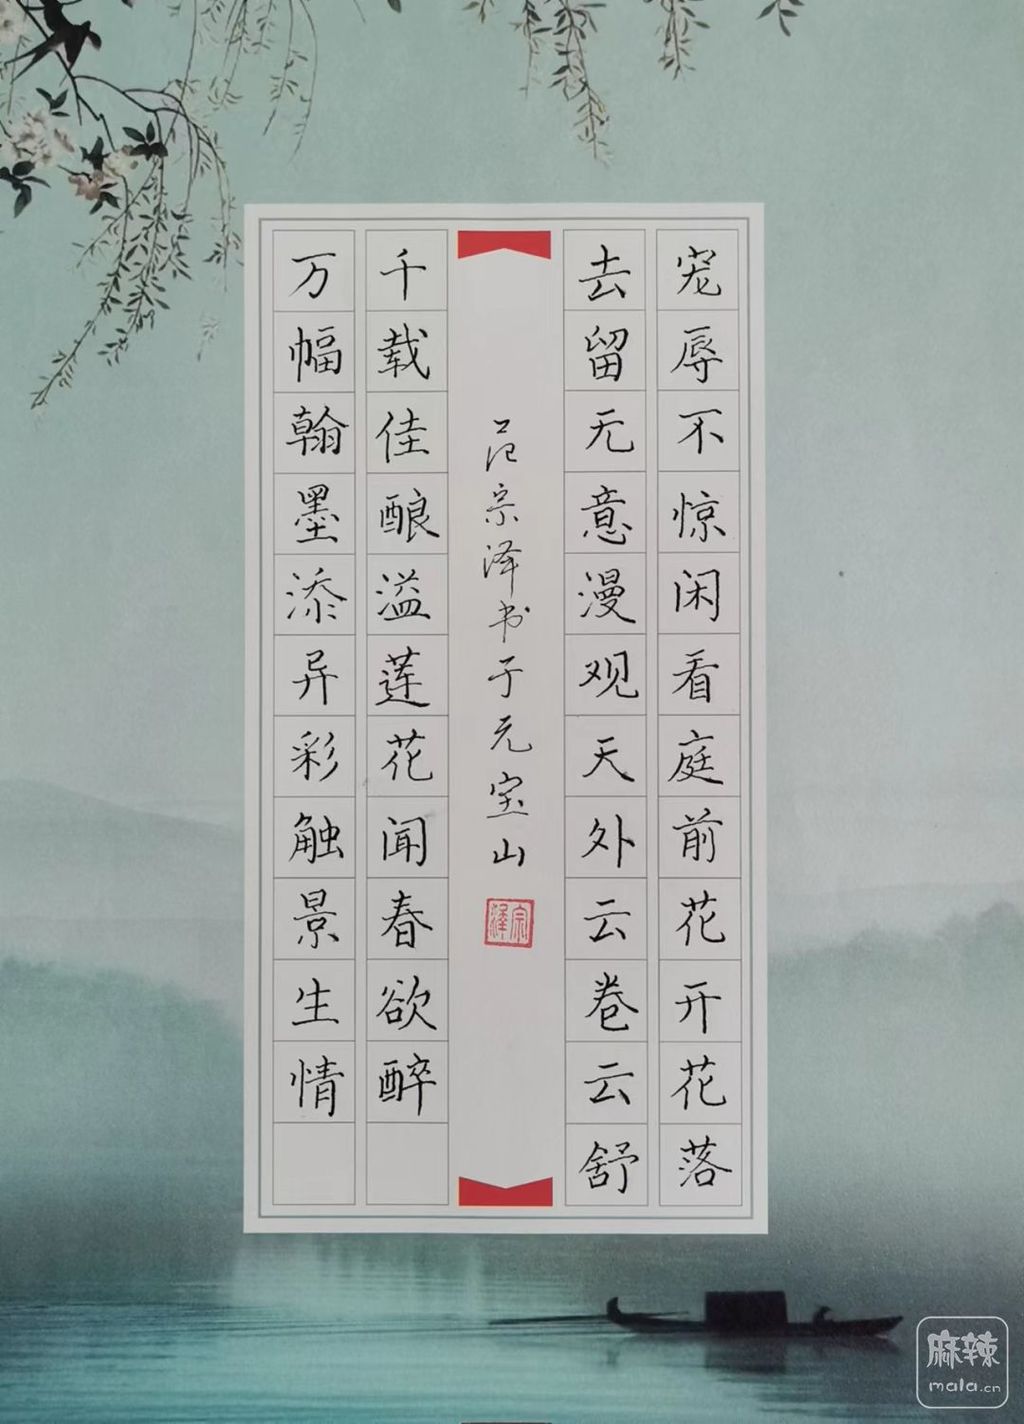 宠辱不惊闲看庭前花开花落
去留无意漫观天外云卷云舒
范宗泽书于元宝山
宗泽
千载佳酿溢莲花闻春欲醉
万幅翰墨添异彩触景生情
麻辣
mala.cn